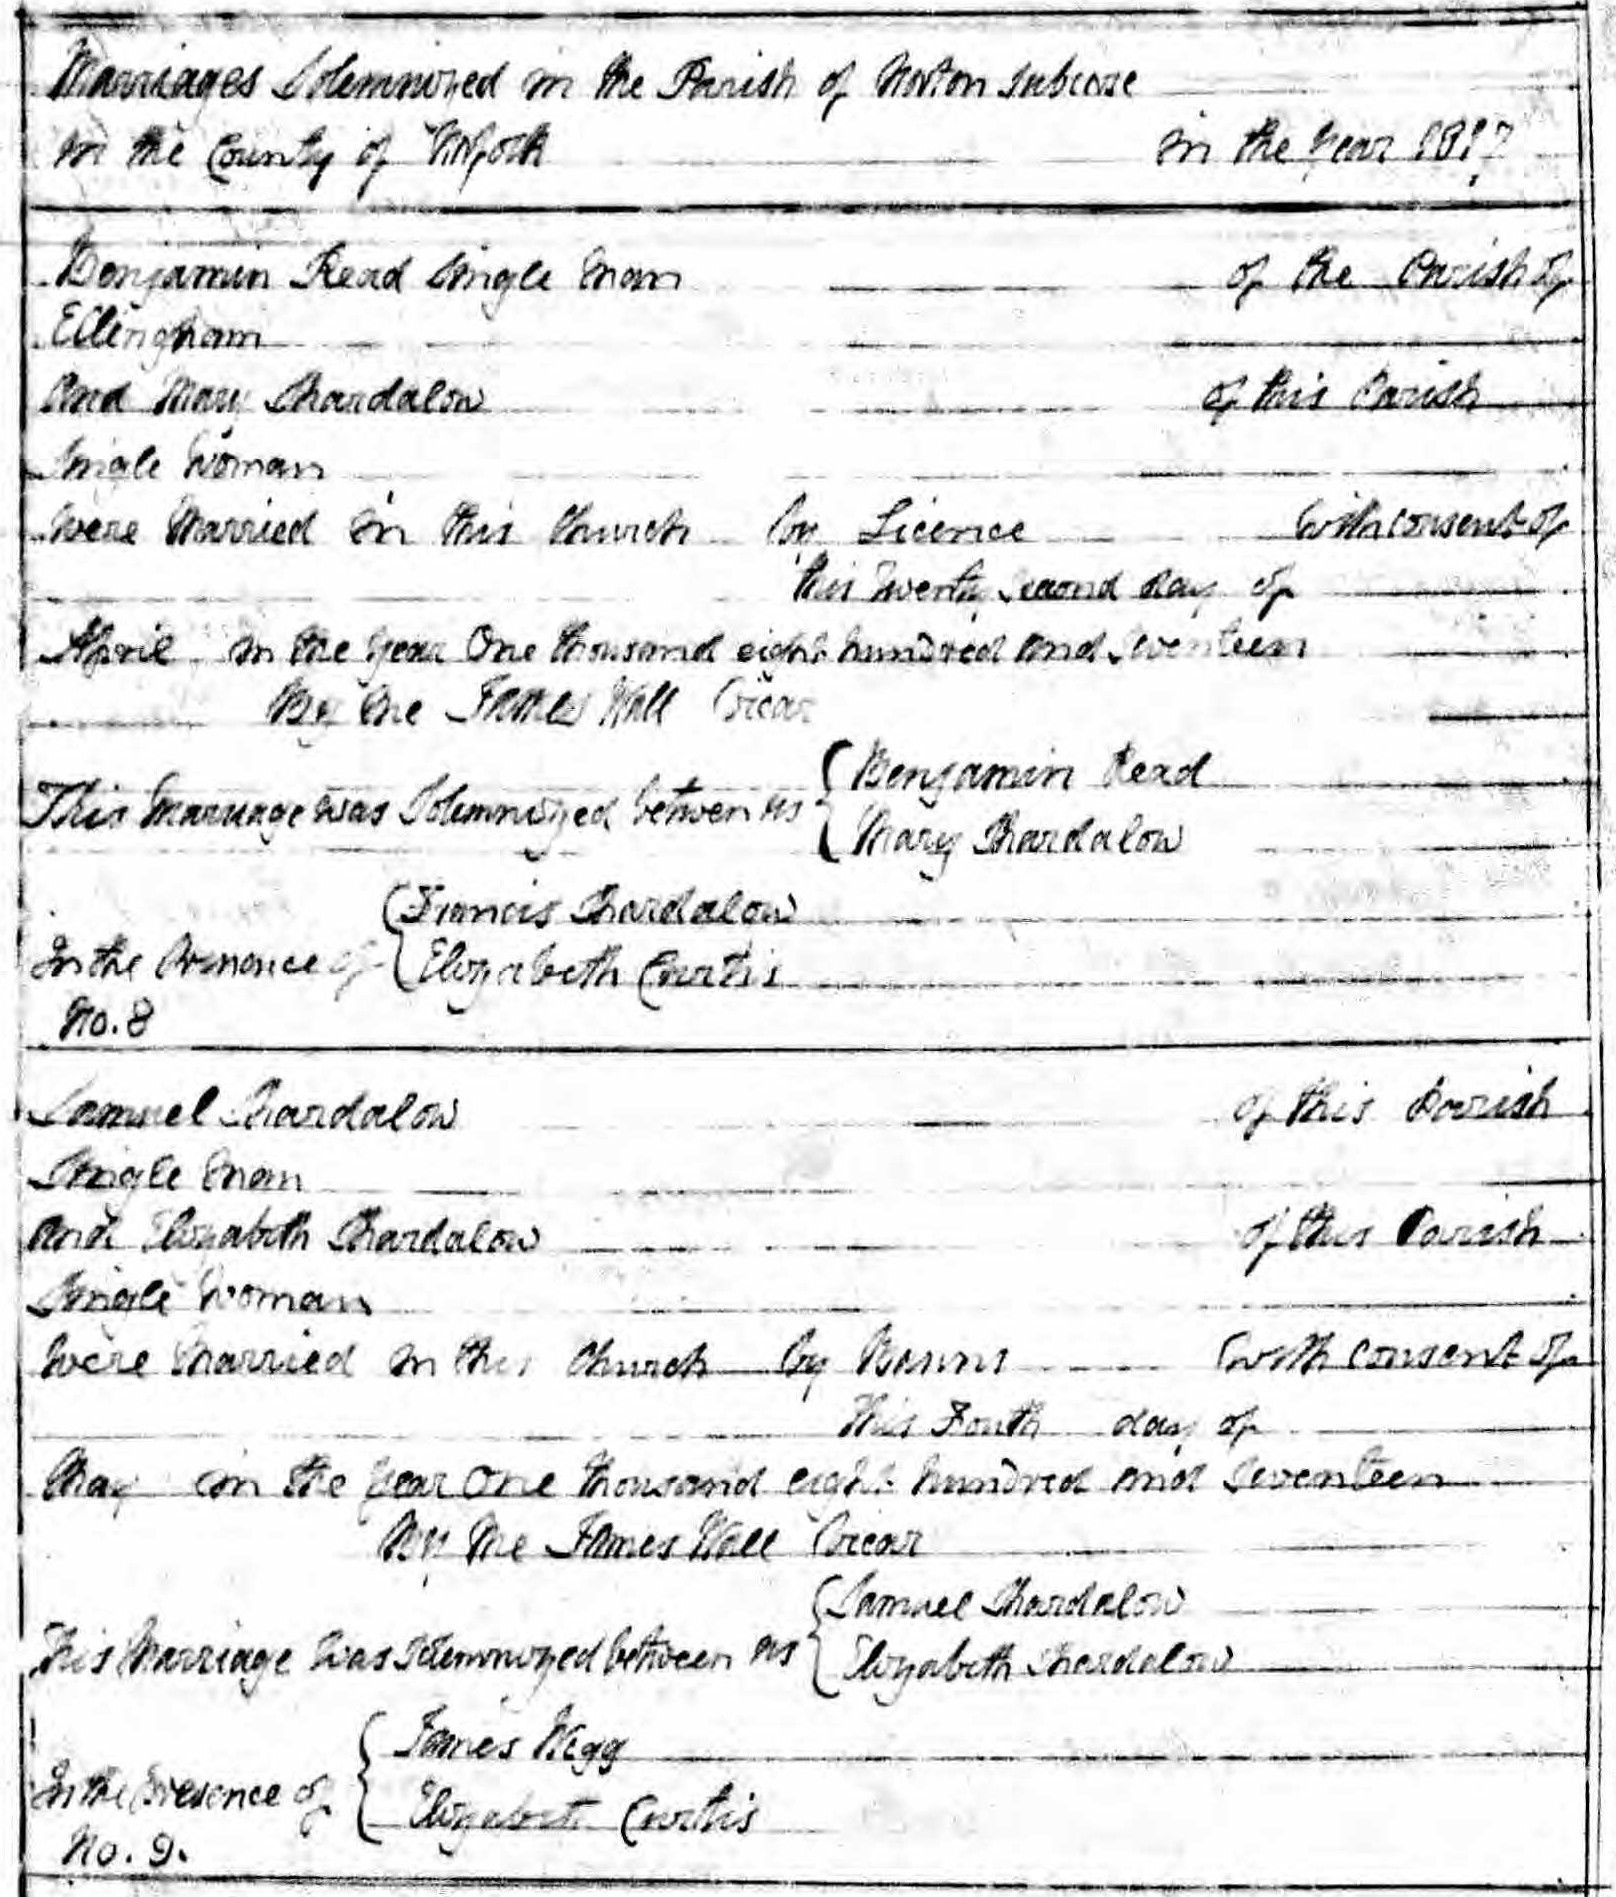 Marriages Solemnized in the Parish of Norton Subcorse
in the County of Norfolk in the Year 1817
Benjamin Read Single Man of the Parish of
Ellingham
And Mary Shardalow of this Parish
Single Woman
Were Married in this Church by Licence with consent of
this Twenty Second day of
April in the year One thousand eight hundred and Seventeen
By Me James Wall Vicar
This Marriage was Solemnized between us { Benjamin Read
Mary Shardalow
In the Presence of { Francis Shardalow
Elizabeth Curtis
No. 8
Samuel Shardalow of this Parish
Single Man
and Elizabeth Shardalow of this Parish
Single Woman
Were Married in this Church by Banns with consent of
this Fouth day of
May in the year One thousand eight hundred and Seventeen
By Me James Wall Vicar
This Marriage was Solemnized between us { Samuel Shardalow
Elizabeth Shardalow
In the Presence of { James Wigg
Elizabeth Curtis
No. 9.